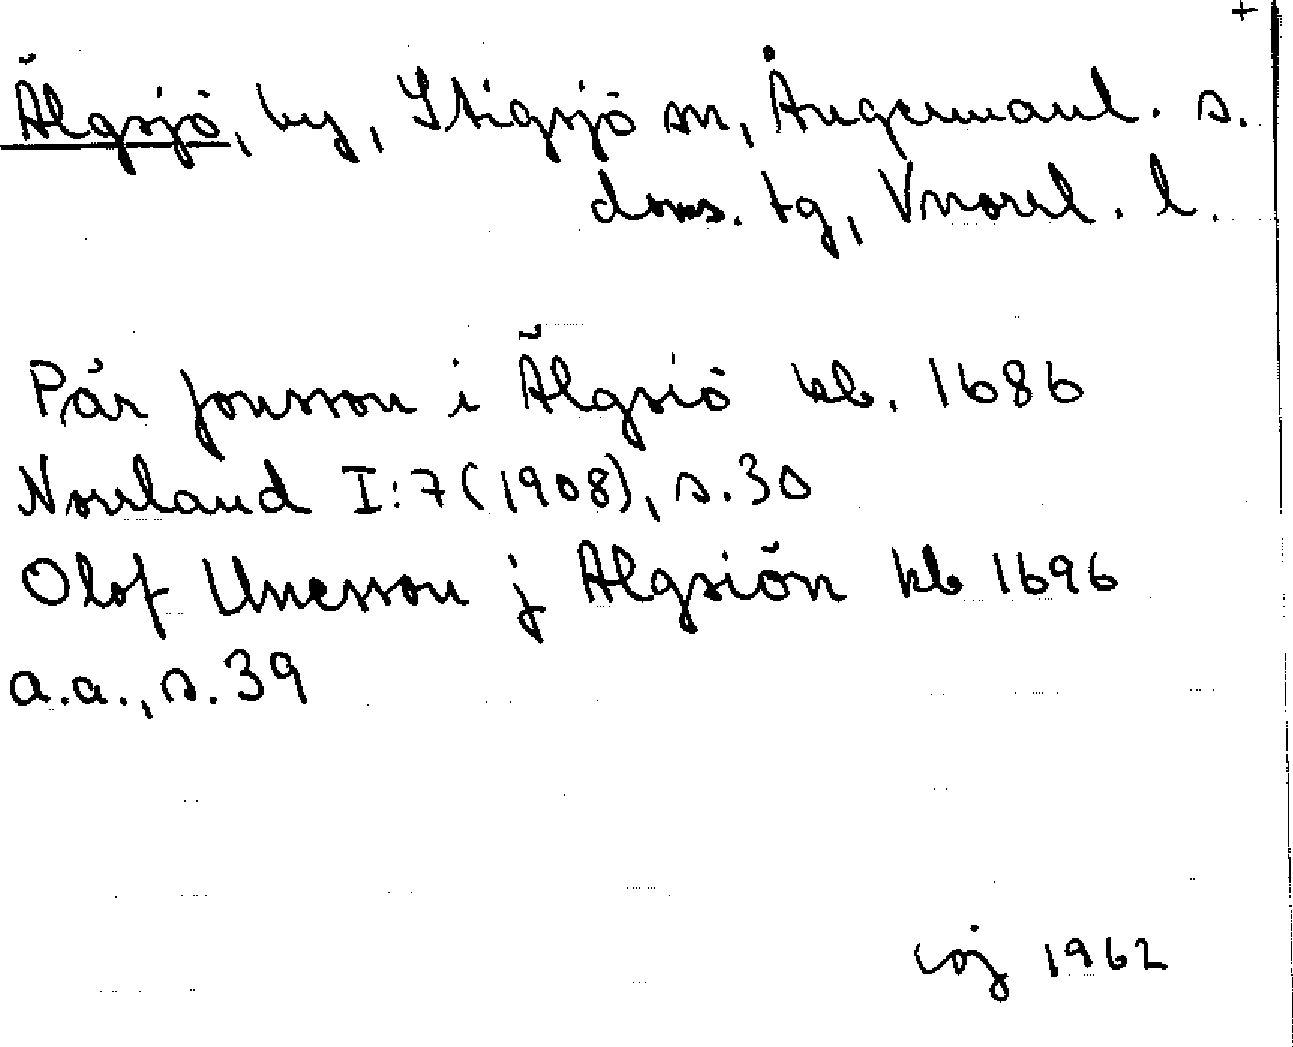 +
Älgsjö, by, Stigsjö sn, Ångermanl. s.
doms. tg, Vnorrl. l.
Pär Jonsson i Älgsiö kb. 1686
Norrland I:7 (1908), s. 30
Olof Unesson j Algsiön kb 1696
a.a., s. 39
1962